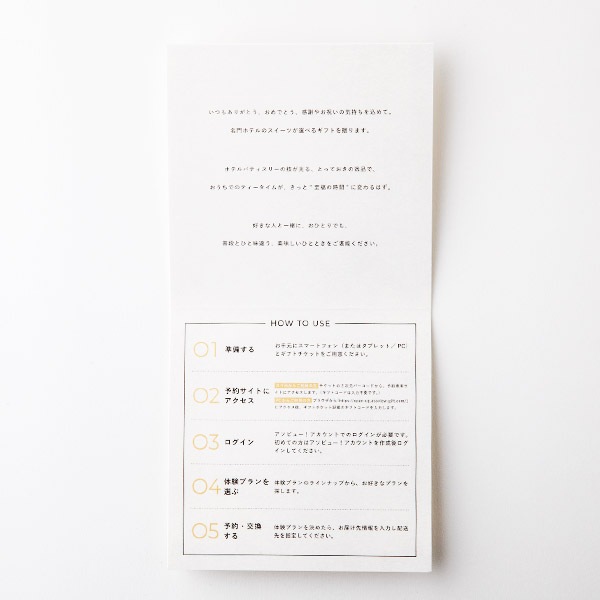 いつもありがとう、おめでとう、感謝やお祝いの気持ちを込めて。
名門ホテルのスイーツが選べるギフトを贈ります。
ホテルパティスリーの技が光る、とっておきの逸品で、
おうちでのティータイムが、きっと“至福の時間”に変わるはず。
好きな人と一緒に、おひとりでも。
普段とひと味違う、美味しいひとときをご堪能ください。
HOW TO USE
01 準備する
お手元にスマートフォン（またはタブレット／PC）
とギフトチケットをご用意ください。
02 予約サイトに
アクセス
03 ログイン
アソビュー！アカウントでのログインが必要です。
初めての方はアソビュー！アカウントを作成後ログ
インしてください。
04 体験プランを
選ぶ
体験プランのラインナップから、お好きなプランを
探します。
05 予約・交換
する
体験プランを決めたら、お届け先情報を入力し配送
先を指定してください。